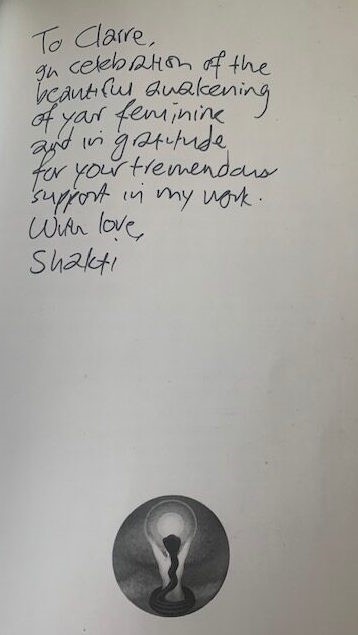 To Claire,
In celebration of the
beautiful awakening
of your feminine
and in gratitude
for your tremendous
support in my work.
With love,
Shakti